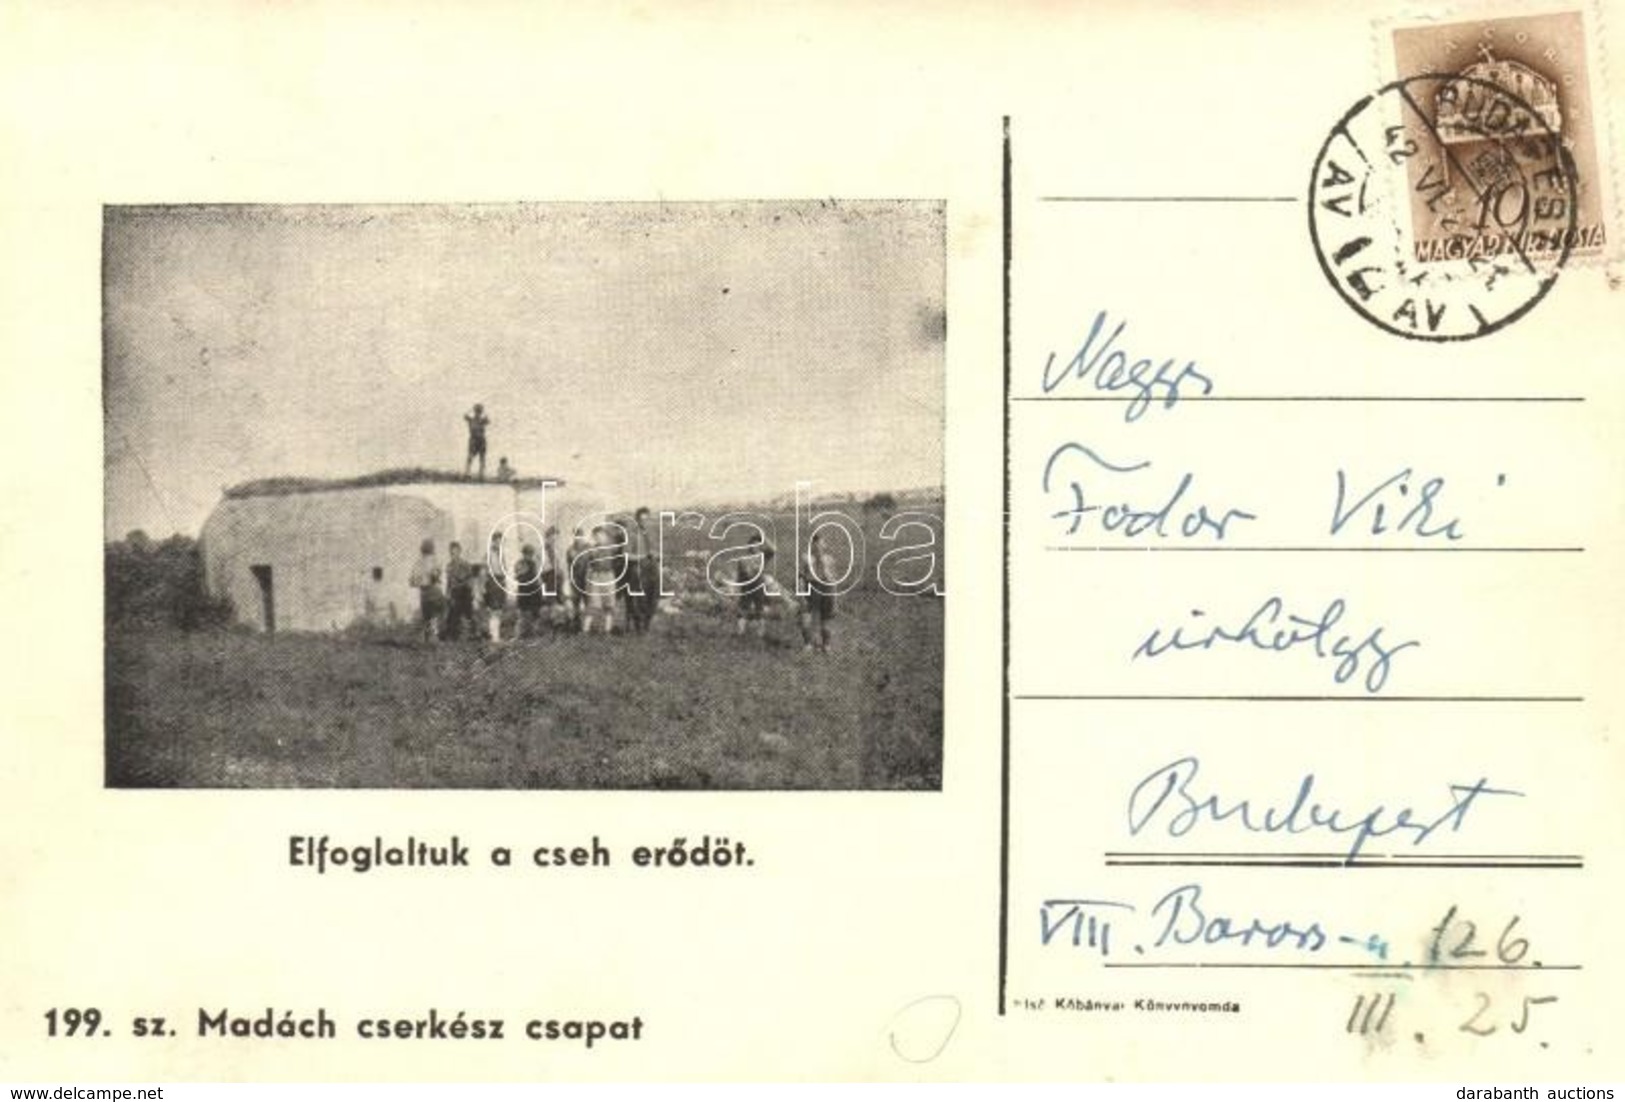 Elfoglaltuk a cseh erődöt.
199. sz. Madách cserkész csapat
BUDAPEST
42 VI.
10
MAGYAR KIR. POSTA
Nagys
Fodor Viki
úrhölgy
Budapest
VIII. Baross-u. 126.
III. 25.
Első Kőbányai Könyvnyomda
darabanth
darabanth auctions